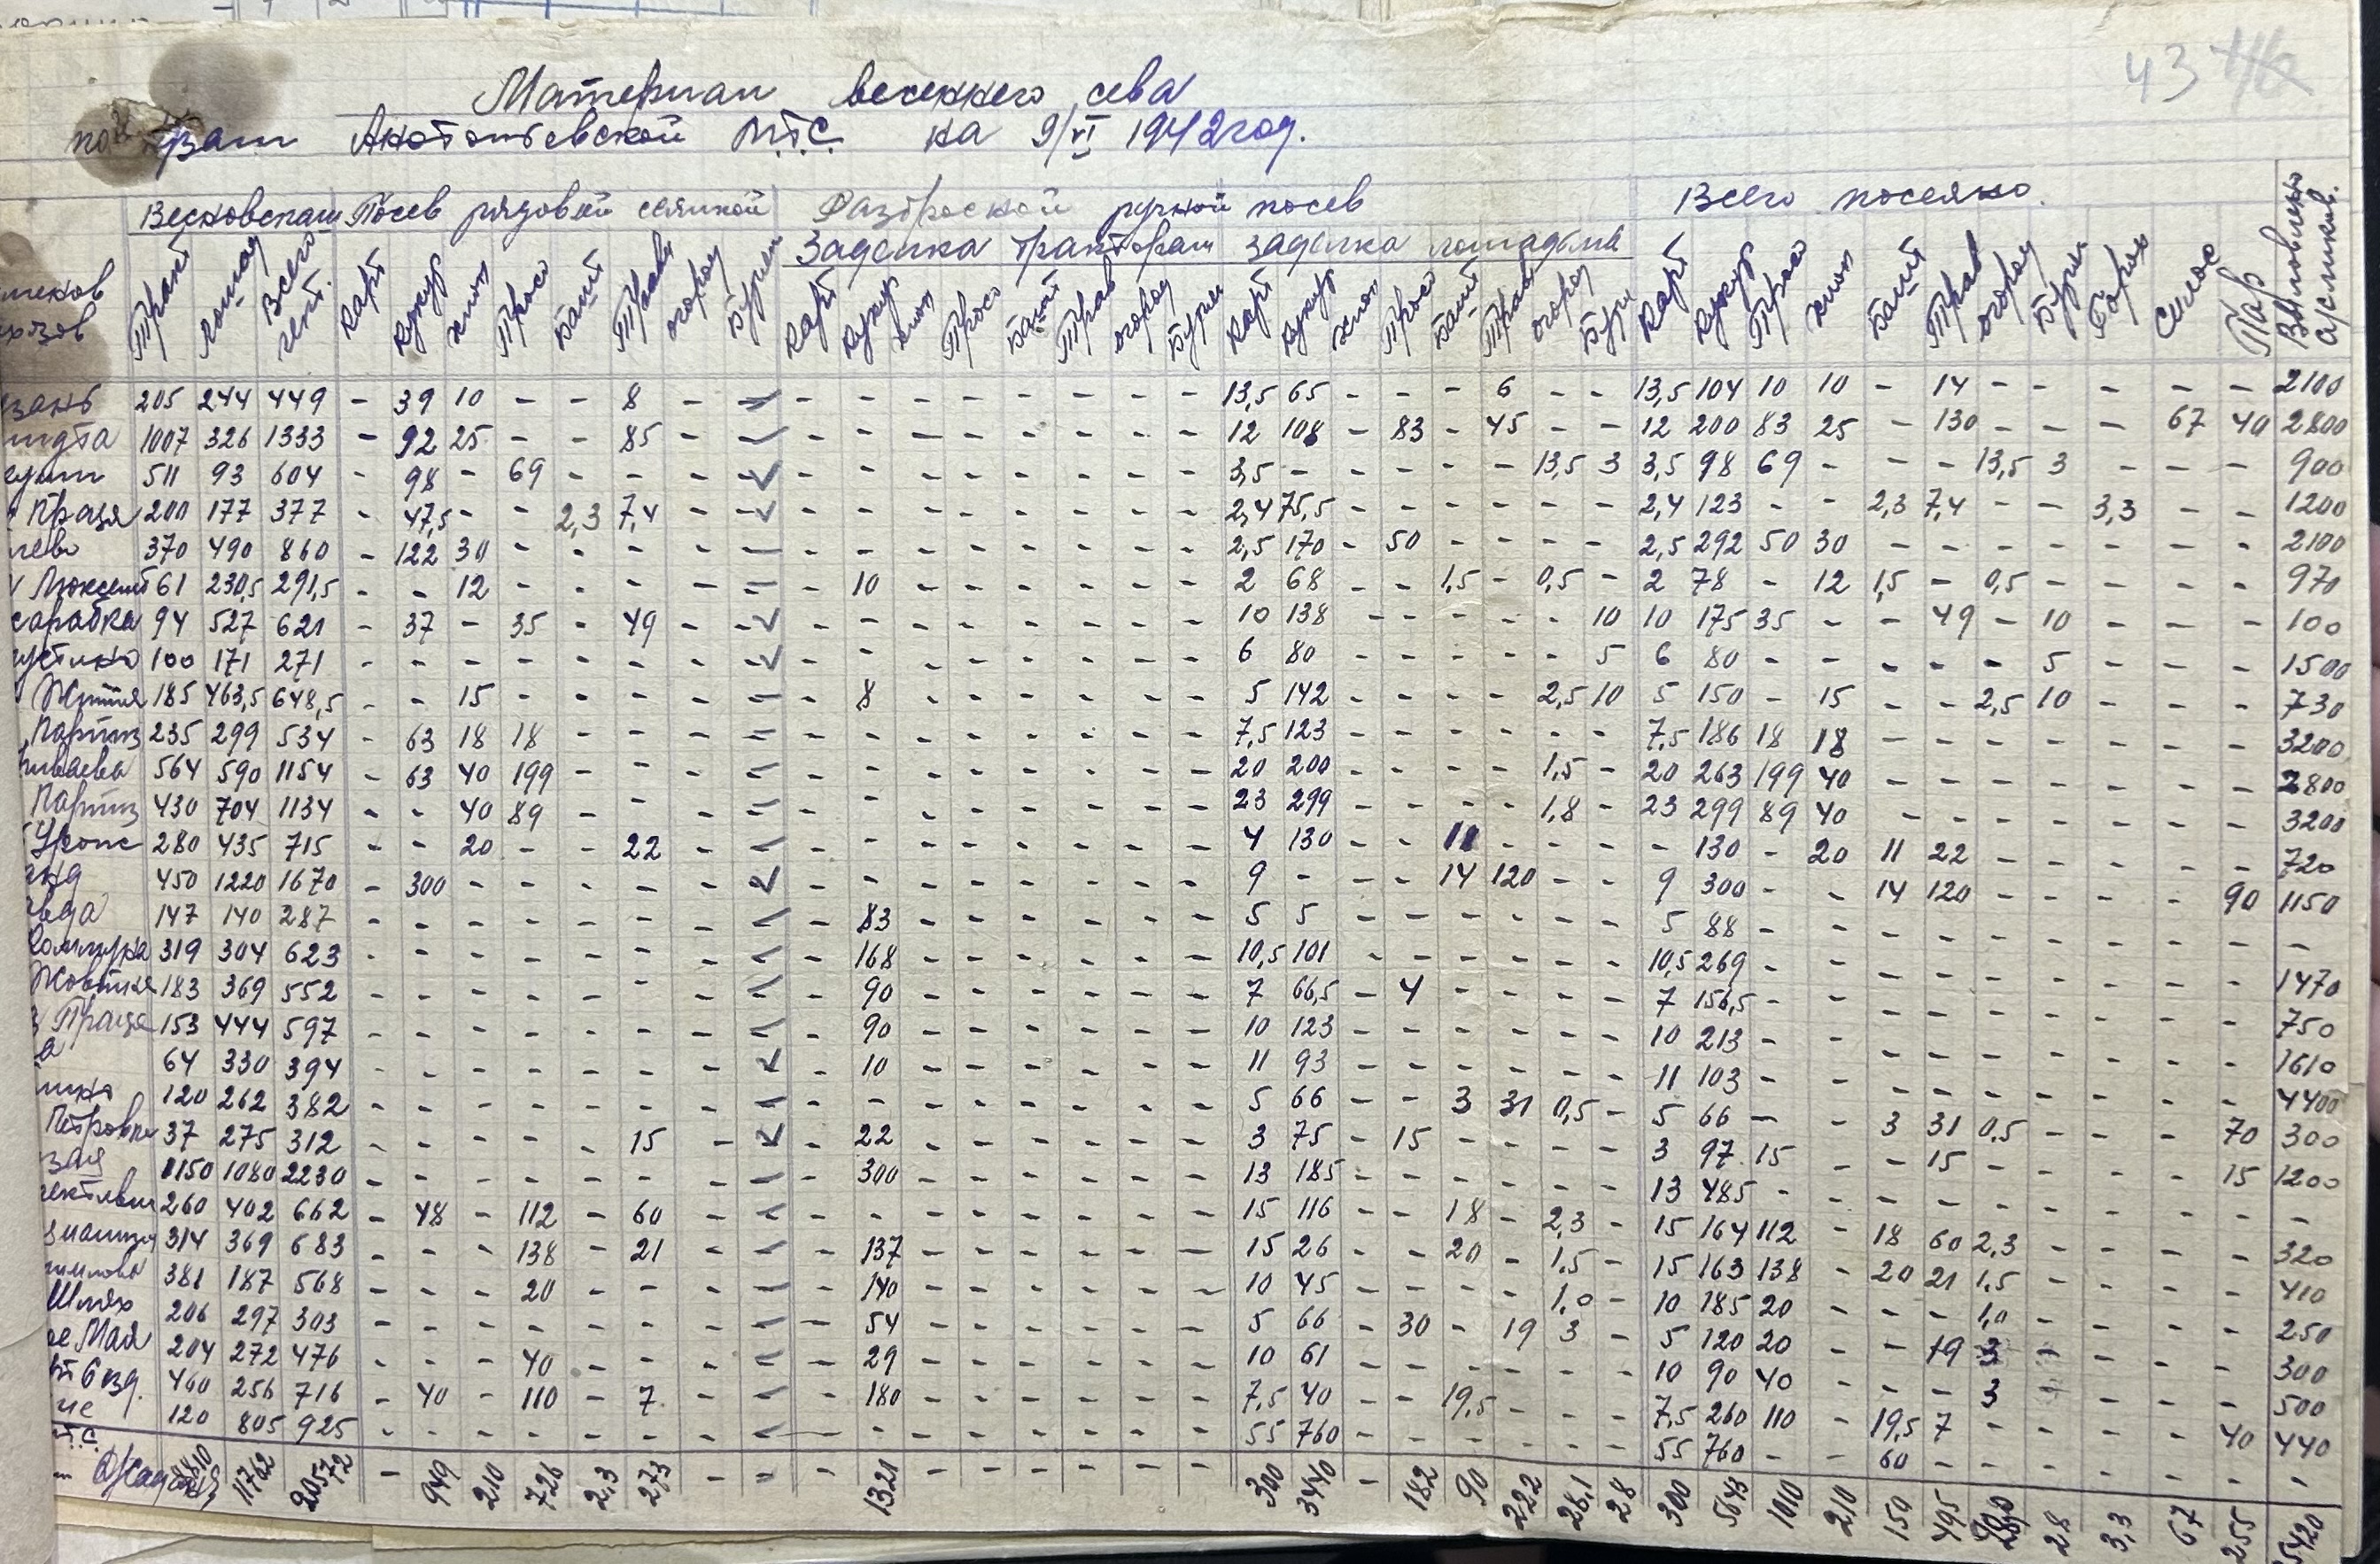 43
Материал весеннего сева
по Анатольевской М.Т.С. на 9/VI 1942 год.
Весновспаш Посев рядовой сеялкой Разброской ручной посев Всего посеяно. Выловлено сусликов.
Заделка тракторам заделка лошадьма
Тракт лошад Всего гект. Карт Кукур хлоп Просо Башт Трава огород Бурян Карт Кукур хлоп Просо Башт Трав огород Бурян Карт Кукур хлоп Просо Башт Трав огород Бурян Карт Кукур Просо хлоп Башт Трав огород Бурян Горох Силос Пар
205 244 449 - 39 10 - - 8 - - - - - - - - - - 13,5 65 - - - 6 - - 13,5 104 10 10 - 14 - - - - - 2100
1007 326 1333 - 92 25 - - 85 - - - - - - - - - - 12 108 - 83 - 45 - - 12 200 83 25 - 130 - - - 67 40 2800
511 93 604 - 98 - 69 - - - - - - - - - - - 3,5 - - - - - 13,5 3 3,5 98 69 - - - 13,5 3 - - - 900
Праця 200 177 377 - 47,5 - - 2,3 7,4 - - - - - - - - - 2,4 75,5 - - - - - - 2,4 123 - - 2,3 7,4 - - 3,3 - - 1200
370 490 860 - 122 30 - - - - - - - - - - - - 2,5 170 - 50 - - - - 2,5 292 50 30 - - - - - - - 2100
61 230,5 291,5 - - 12 - - - - - - 10 - - - - - - 2 68 - - 1,5 - 0,5 - 2 78 - 12 1,5 - 0,5 - - - - 970
94 527 621 - 37 - 35 - 49 - - - - - - - - - - 10 138 - - - - - 10 10 175 35 - - 49 - 10 - - - 100
100 171 271 - - - - - - - - - - - - - - - - 6 80 - - - - - 5 6 80 - - - - - 5 - - - 1500
185 463,5 648,5 - - 15 - - - - - - 8 - - - - - - 5 142 - - - - 2,5 10 5 150 - 15 - - 2,5 10 - - - 730
Партиз 235 299 534 - 63 18 18 - - - - - - - - - - - - 7,5 123 - - - - - - 7,5 186 18 18 - - - - - - - 3200
564 590 1154 - 63 40 199 - - - - - - - - - - - 20 200 - - - - 1,5 - 20 263 199 40 - - - - - - - 2800
Партиз 430 704 1134 - - 40 89 - - - - - - - - - - - 23 299 - - - - 1,8 - 23 299 89 40 - - - - - - - 3200
280 435 715 - - 20 - - 22 - - - - - - - - - - 4 130 - - 11 - - - - 130 - 20 11 22 - - - - - 720
450 1220 1670 - 300 - - - - - - - - - - - - - - 9 - - - 14 120 - - 9 300 - - 14 120 - - - - 90 1150
147 140 287 - - - - - - - - - 83 - - - - - - 5 5 - - - - - - 5 88 - - - - - - - - - -
319 304 623 - - - - - - - - - 168 - - - - - - 10,5 101 - - - - - - 10,5 269 - - - - - - - - - 1470
183 369 552 - - - - - - - - - 90 - - - - - - 7 66,5 - 4 - - - - 7 156,5 - - - - - - - - - 750
Праця 153 444 597 - - - - - - - - - 90 - - - - - - 10 123 - - - - - - 10 213 - - - - - - - - - 1610
64 330 394 - - - - - - - - - 10 - - - - - - 11 93 - - - - - - 11 103 - - - - - - - - - 4400
120 262 382 - - - - - - - - - - - - - - - - 5 66 - - 3 31 0,5 - 5 66 - - 3 31 0,5 - - - 70 300
37 275 312 - - - - - 15 - - 22 - - - - - - 3 75 - 15 - - - - 3 97 15 - - 15 - - - - 15 1200
1150 1080 2230 - - - - - - - - - 300 - - - - - - 13 185 - - - - - - 13 485 - - - - - - - - - -
260 402 662 - 48 - 112 - 60 - - - - - - - - - - 15 116 - - 18 - 2,3 - 15 164 112 - 18 60 2,3 - - - - 320
314 369 683 - - - 138 - 21 - - - 137 - - - - - - 15 26 - - 20 - 1,5 - 15 163 138 - 20 21 1,5 - - - - 410
381 187 568 - - - 20 - - - - - 140 - - - - - - 10 45 - - - - 1,0 - 10 185 20 - - - 1,0 - - - - 250
Шлях 206 297 303 - - - - - - - - - 54 - - - - - - 5 66 - 30 - 19 3 - 5 120 20 - - 19 3 - - - - 300
Мая 204 272 476 - - - 40 - - - - - 29 - - - - - - 10 61 - - - - - - 10 90 40 - - - 3 - - - - 500
460 256 716 - 40 - 110 - 7 - - - 180 - - - - - - 7,5 40 - - 19,5 - - - 7,5 260 110 - 19,5 7 - - - - 40 440
120 805 925 - - - - - - - - - - - - - - - - 55 760 - - - - - - 55 760 - - 60 - - - - - - -
11762 20572 - 949 210 726 2,3 273 - - 1321 - - - - - - 300 3440 - 182 90 222 28,1 28 300 5643 1010 210 150 495 28 3,3 67 255